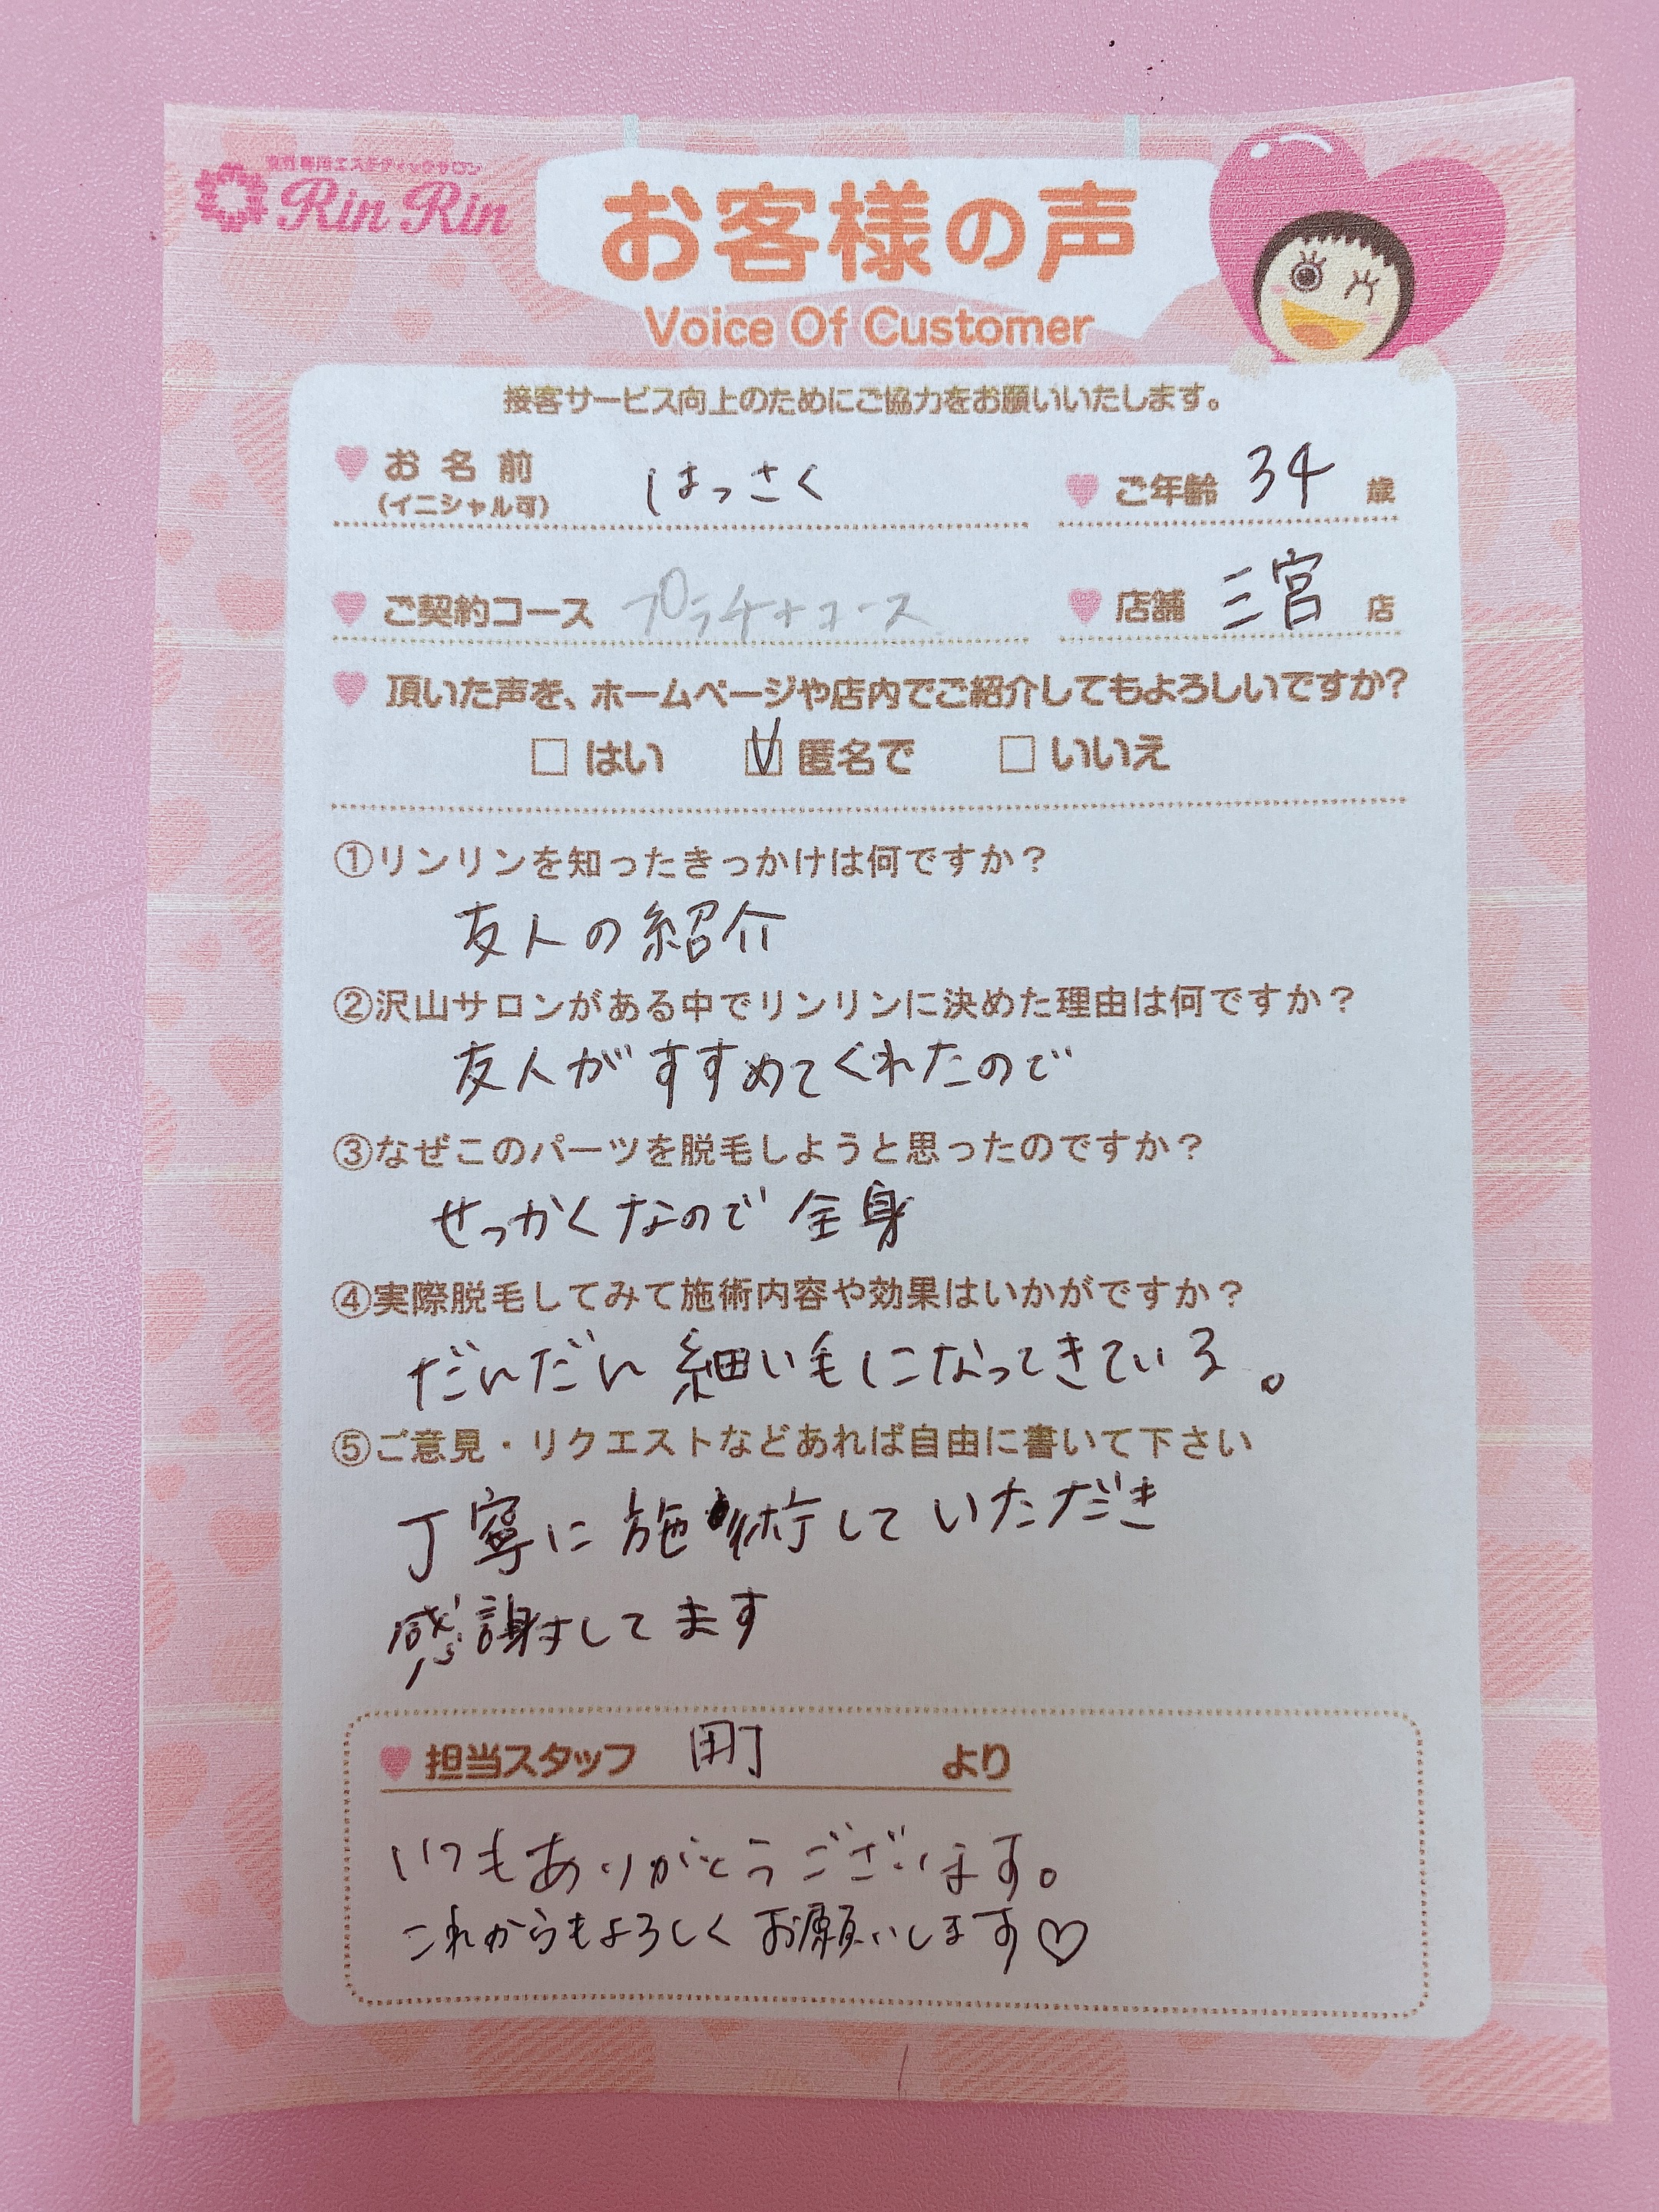 女性専用エステティックサロン
Rin Rin
お客様の声
Voice Of Customer
接客サービス向上のためにご協力をお願いいたします。
お名前 はっさく ご年齢 34 歳
(イニシャル可)
ご契約コース プラチナコース 店舗 三宮 店
頂いた声を、ホームページや店内でご紹介してもよろしいですか?
はい 匿名で いいえ
①リンリンを知ったきっかけは何ですか？
友人の紹介
②沢山サロンがある中でリンリンに決めた理由は何ですか？
友人がすすめてくれたので
③なぜこのパーツを脱毛しようと思ったのですか？
せっかくなので全身
④実際脱毛してみて施術内容や効果はいかがですか？
だんだん細い毛になってきている。
⑤ご意見・リクエストなどあれば自由に書いて下さい
丁寧に施術していただき
感謝してます
担当スタッフ より
いつもありがとうございます。
これからもよろしくお願いします♡